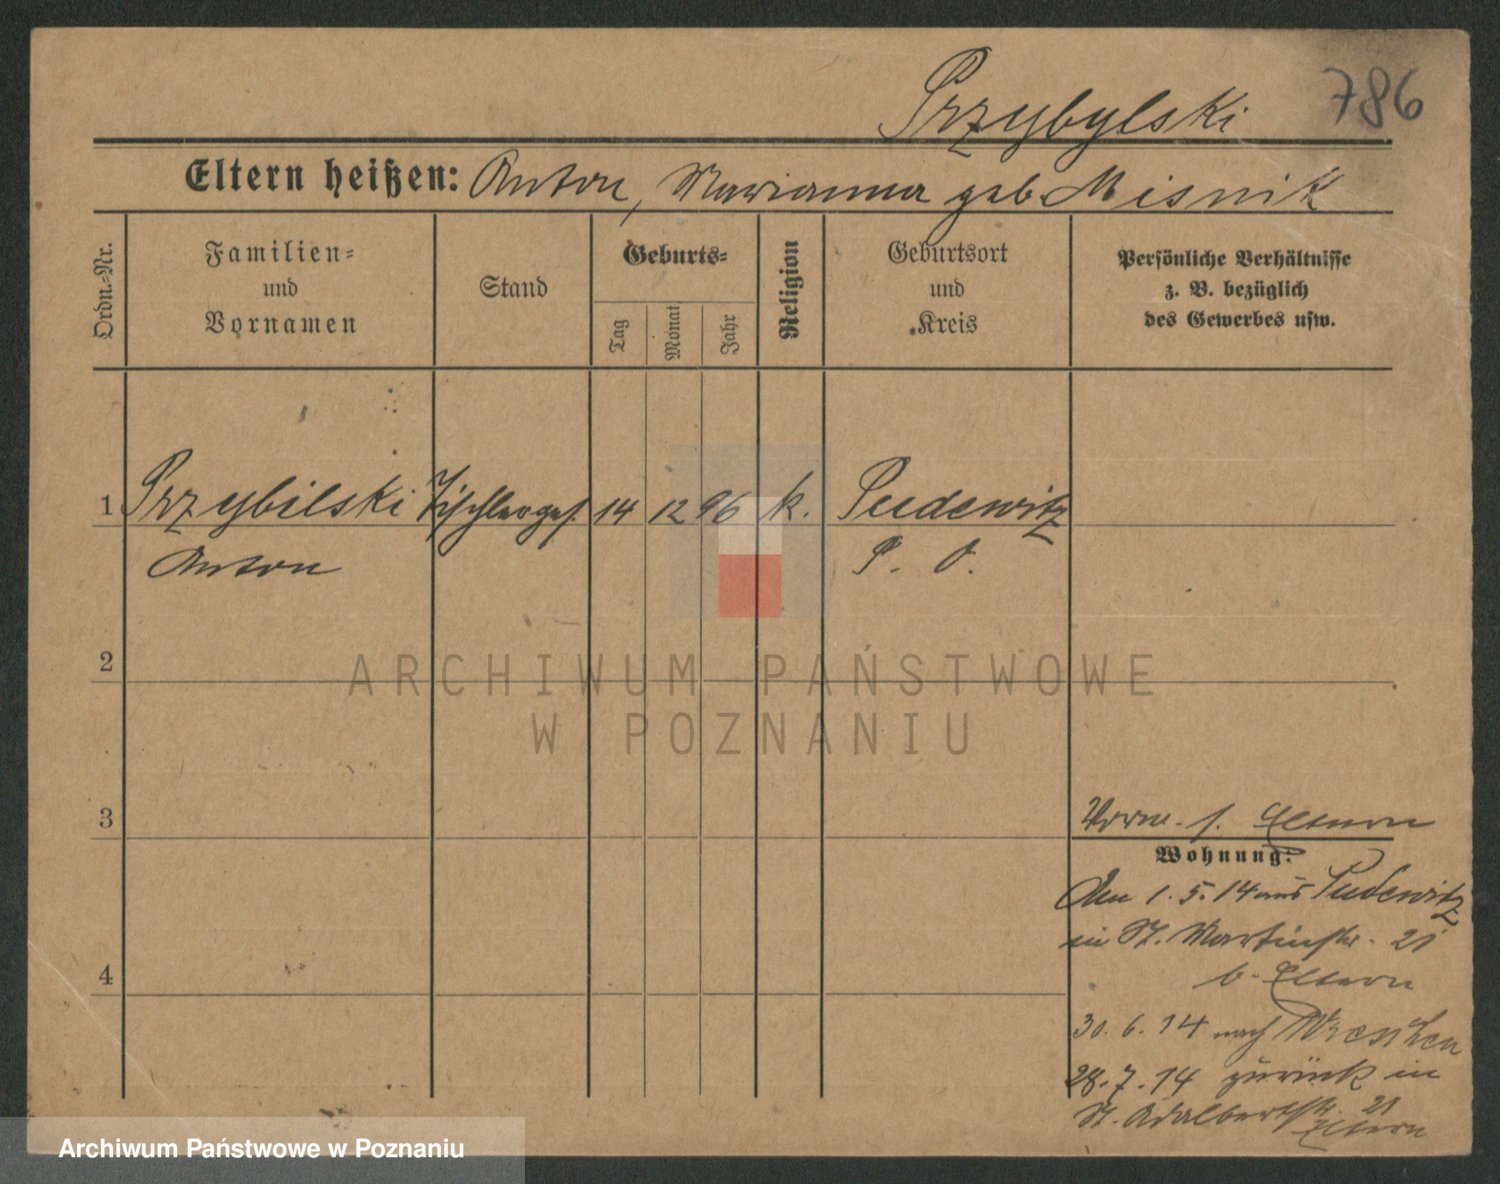 Przybylski 786
Eltern heißen: Anton, Marianna geb. Misnik
Ordn.-Nr.
Familien-
und
Vornamen
Stand
Geburts-
Tag
Monat
Jahr
Religion
Geburtsort
und
Kreis
Persönliche Verhältnisse
z. B. bezüglich
des Gewerbes usw.
1 Przybilski Tischlerges. 14 12 96 k. Pudewitz
Anton P. O.
2
3
4
s. Eltern
Wohnung:
Am 1.5.14 aus Pudewitz
in St. Martinstr. 21
b. Eltern
30.6.14 nach Wreschen
28.7.14 zurück in
St. Adalbertstr. 21
Eltern
ARCHIWUM PAŃSTWOWE
W POZNANIU
Archiwum Państwowe w Poznaniu